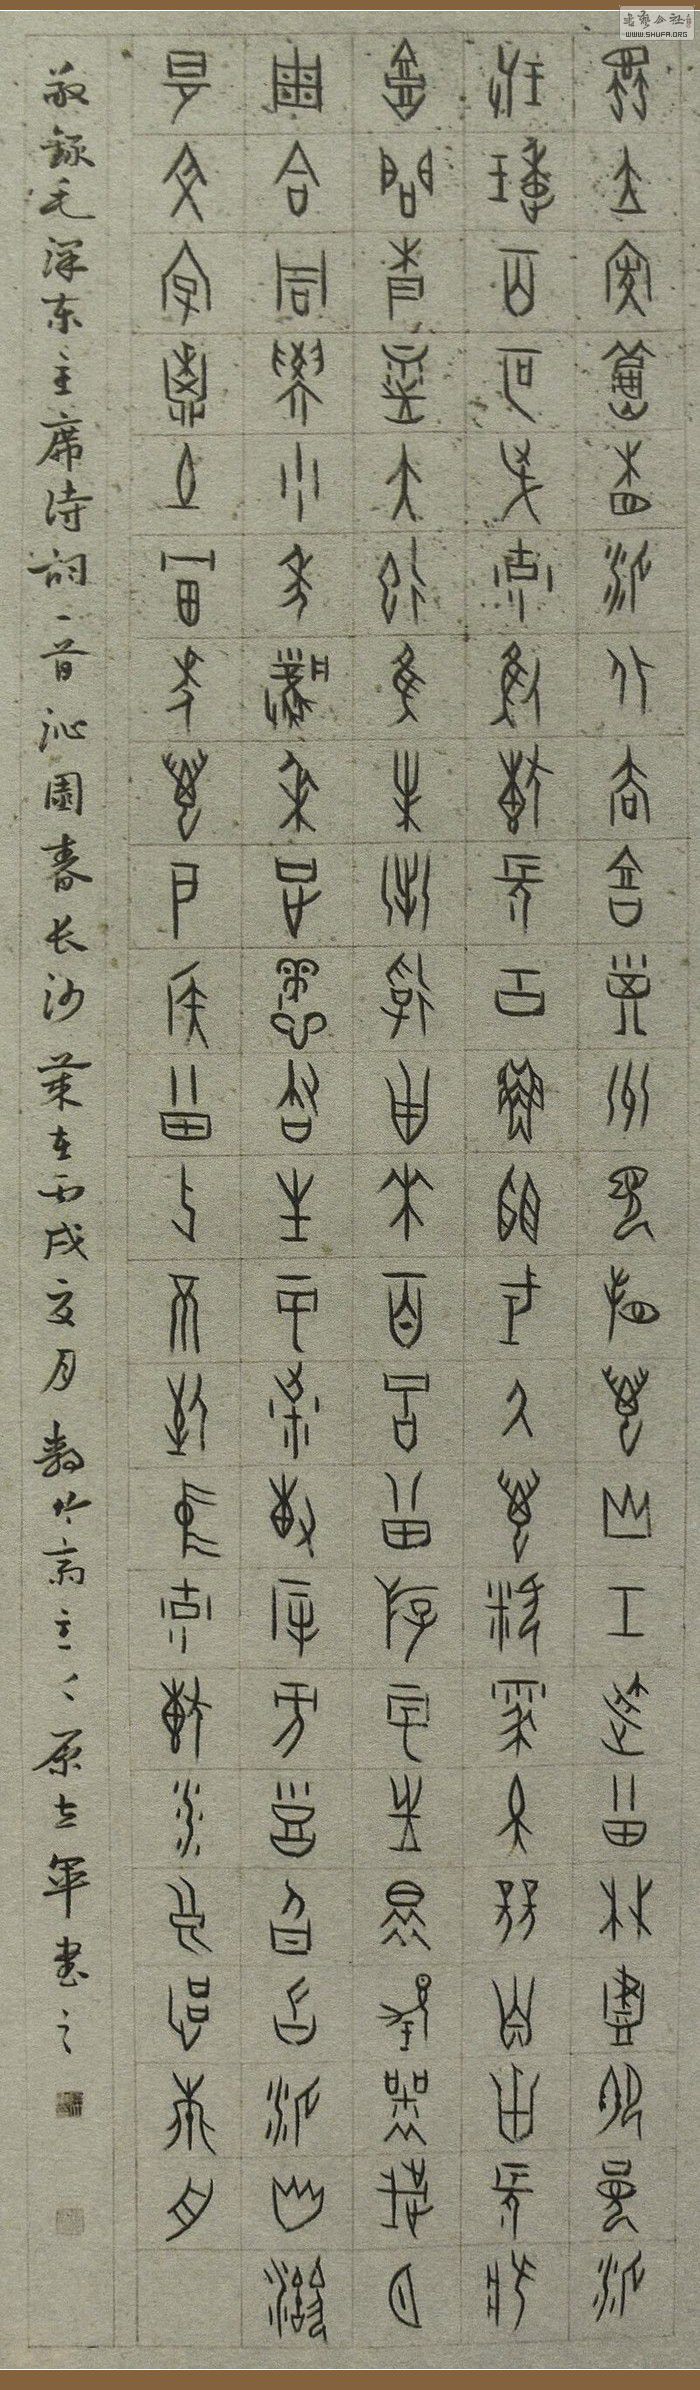 獨立寒秋湘江北去橘子洲頭看萬山紅遍層林盡染漫江
碧透百舸爭流鷹擊長空魚翔淺底萬類霜天競自由悵寥
廓問蒼茫大地誰主沉浮攜來百侶曾遊憶往昔崢嶸歲月
稠恰同學少年風華正茂書生意氣揮斥方遒指點江山激
揚文字糞土當年萬戶侯曾記否到中流擊水浪遏飛舟
敬錄毛澤东主席诗詞一首沁園春长沙 歲在丙戌夏月 書之
書藝公社
WWW.SHUFA.ORG